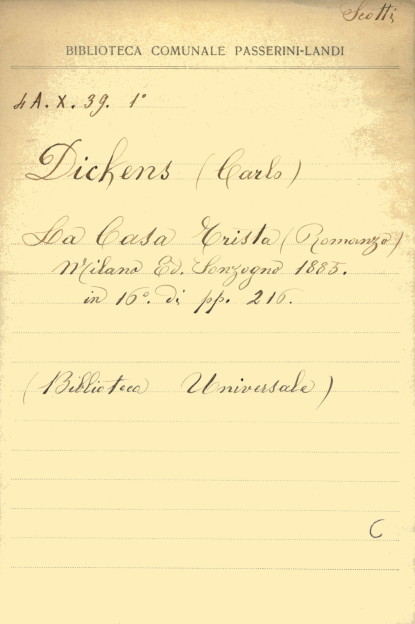 Scotti
BIBLIOTECA COMUNALE PASSERINI-LANDI
4 A. X. 39. 1°
Dickens (Carlo)
La Casa Trista (Romanzo)
Milano Ed. Sonzogno 1885.
in 16°. di pp. 216.
(Biblioteca Universale)
C